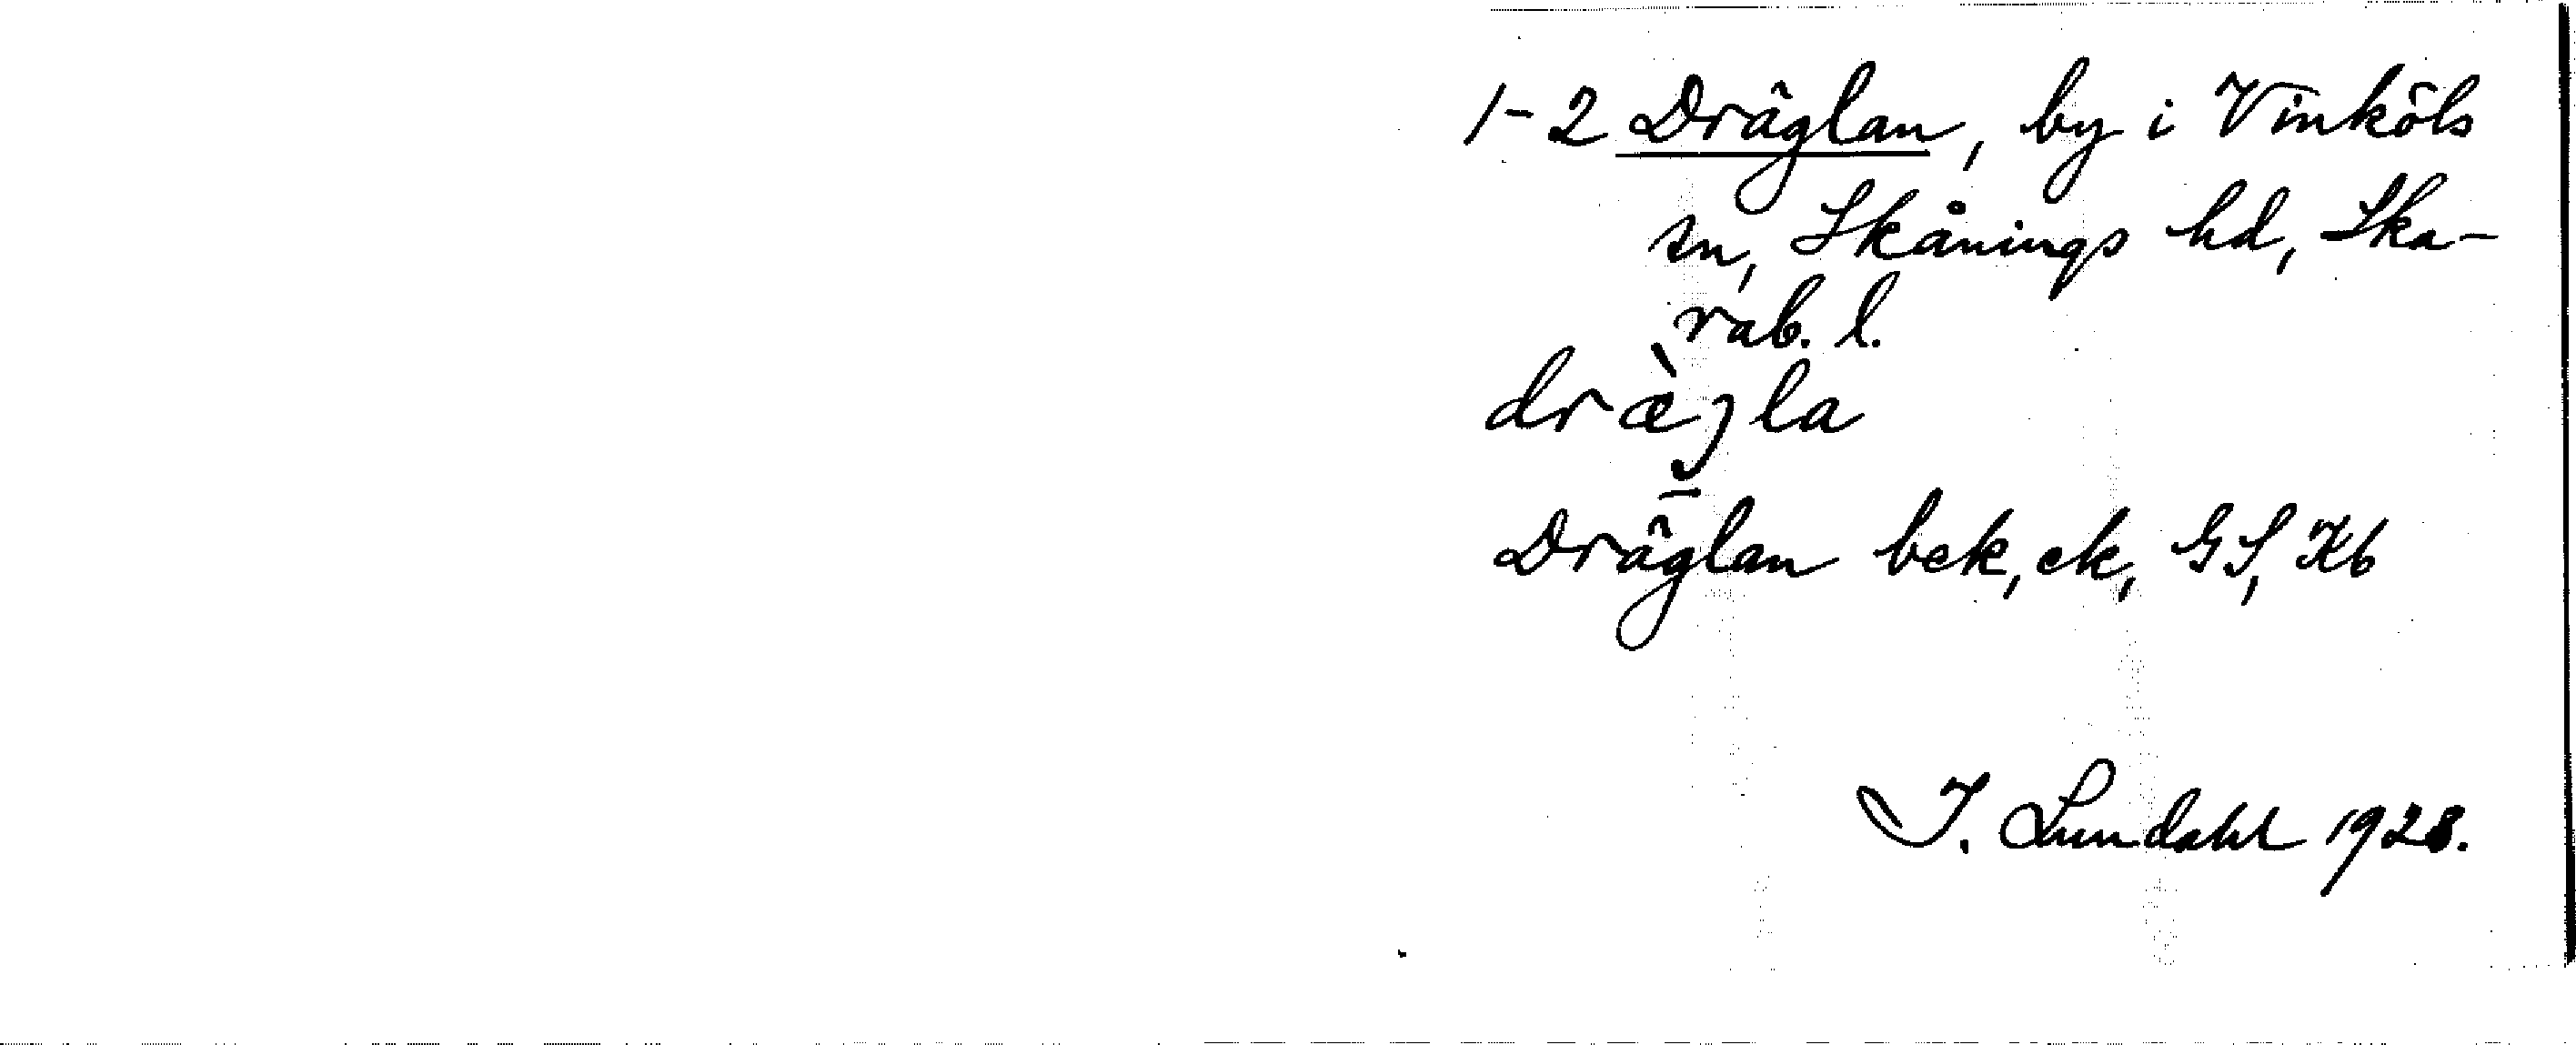 1-2 Dräglan, by i Vinköls
sn, Skånings hd, Ska-
rab. l.
dræ̀jla
Dräglan bek, ek, GS, Kb
I. Lundahl 1928.